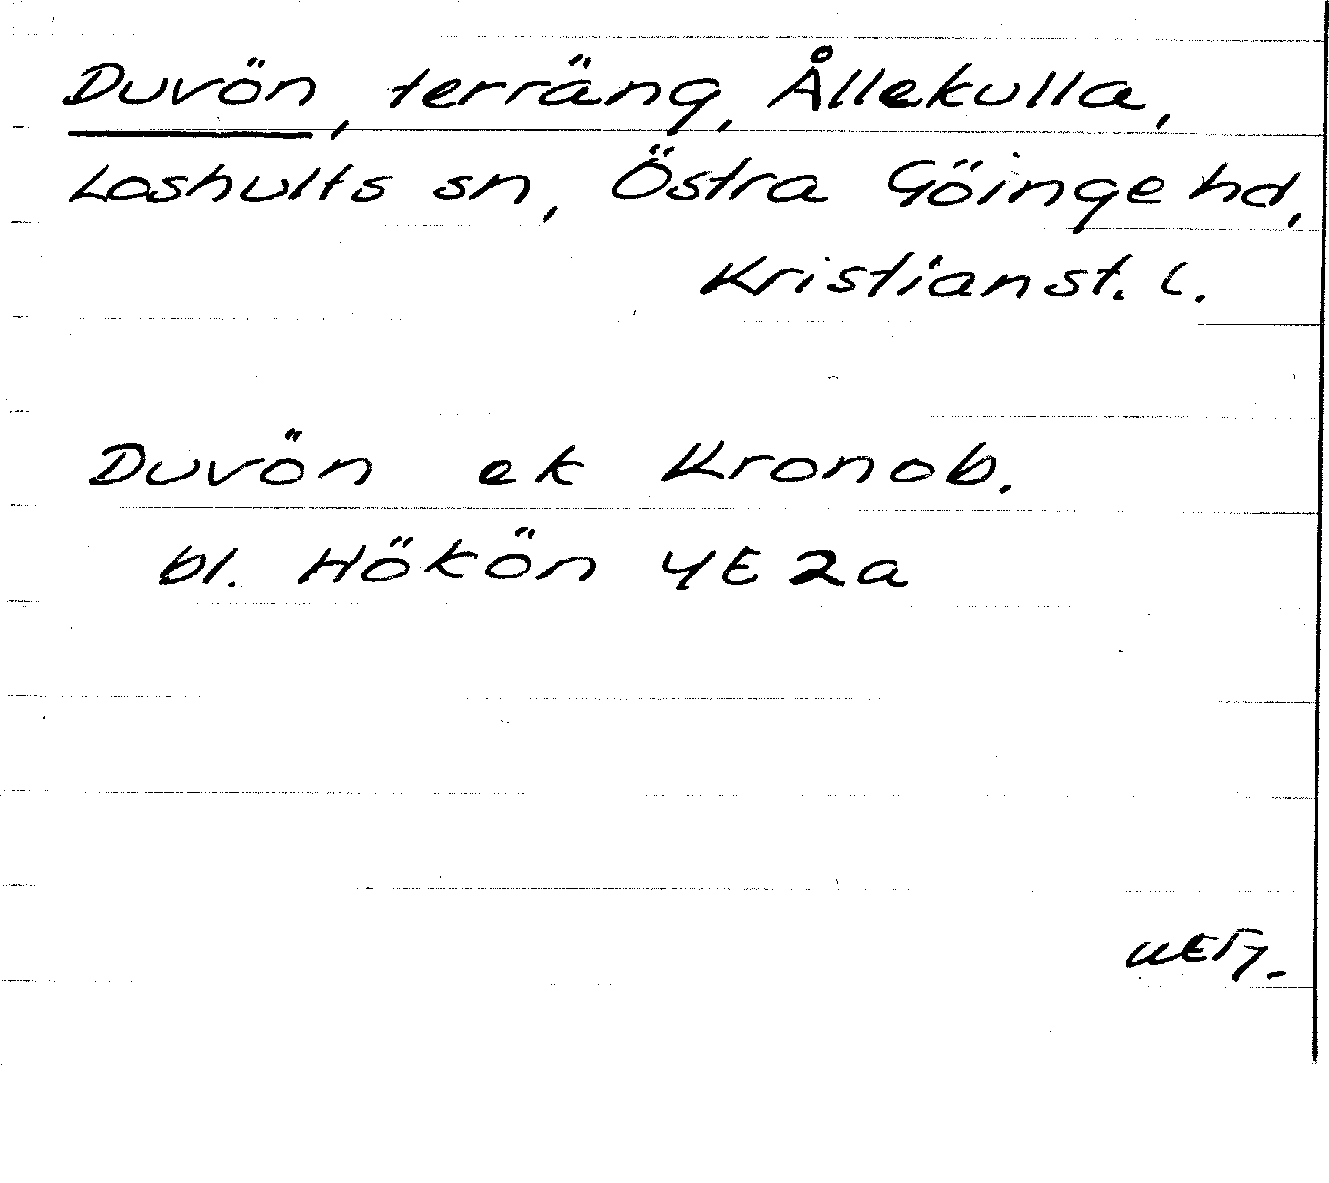 Duvön, terräng, Ållekulla,
Loshults sn, Östra Göinge hd,
Kristianst. l.
Duvön ek Kronob.
bl. Hökön 4E 2a